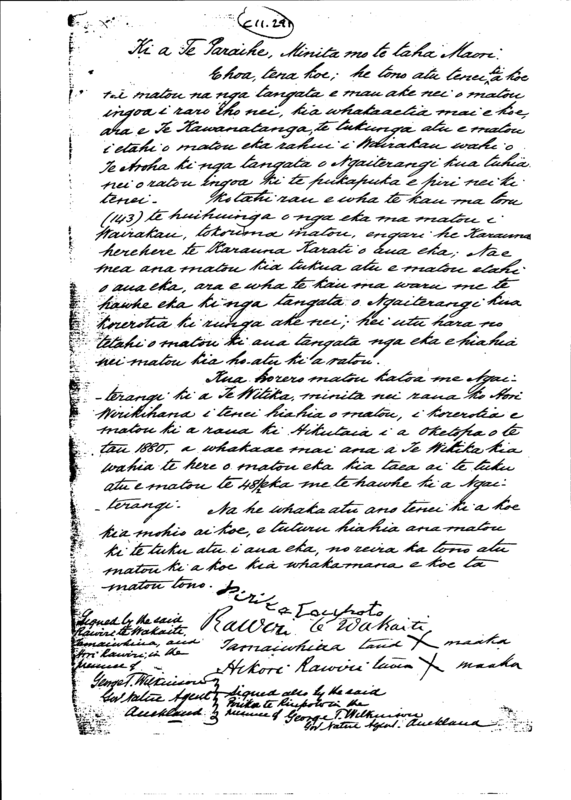 C 11.291
Ki a Te Paraihe, Minita mo te taha Maori.
Ehoa, tena koe; he tono atu tenei ki a koe
na matou na nga tangata e mau ake nei o matou
ingoa i raro iho nei, kia whakaaetia mai e koe,
ara e Te Kawanatanga, te tukunga atu e matou
i etahi o matou eka rahui i Wairakau wahi o
Te Aroha ki nga tangata o Ngaiterangi kua tuhia
nei o ratou ingoa ki te pukapuka e piri nei ki
tenei. Kotahi rau e wha te kau ma toru
(143) te huihuinga o nga eka ma matou i
Wairakau, tokorima matou, engari he Karauna
herehere te Karauna Karati o aua eka; Na e
mea ana matou kia tukua atu e matou etahi
o aua eka, ara e wha te kau ma waru me te
hawhe eka ki nga tangata o Ngaiterangi kua
korerotia ki runga ake nei; hei utu hara no
tetahi o matou ki aua tangata nga eka e hiahia
nei matou kia ho-atu ki a ratou.
Kua korero matou katoa me Ngai-
-terangi ki a Te Witika, minita nei raua ko Hori
Wirikihana i tenei hiahia o matou, i korerotia e
matou ki a raua ki Hikutaia i a Oketopa o te
tau 1880, a whakaae mai ana a Te Witika kia
wahia te here o matou eka kia taea ai te tuku
atu e matou te 48½ eka me te hawhe ki a Ngai-
-terangi. Na he whaka atu ano tenei ki a koe
kia mohio ai koe, e tuturu hiahia ana matou
ki te tuku atu i aua eka, no reira ka tono atu
matou ki a koe kia whakamana e koe ta
matou tono.
Pirika te
Rawiri te Wakaite
Tamaiwhiua X maaka
Hikori Rawiri X maaka
Signed by the said
Rawiri te Wakaite,
Tamaiwhiua, and
Hori Rawiri, in the
presence of
George T. Wilkinson
Gov Native Agent
Auckland
Signed also by the said
Pirika te in the
presence of George T. Wilkinson
Gov Native Agent. Auckland